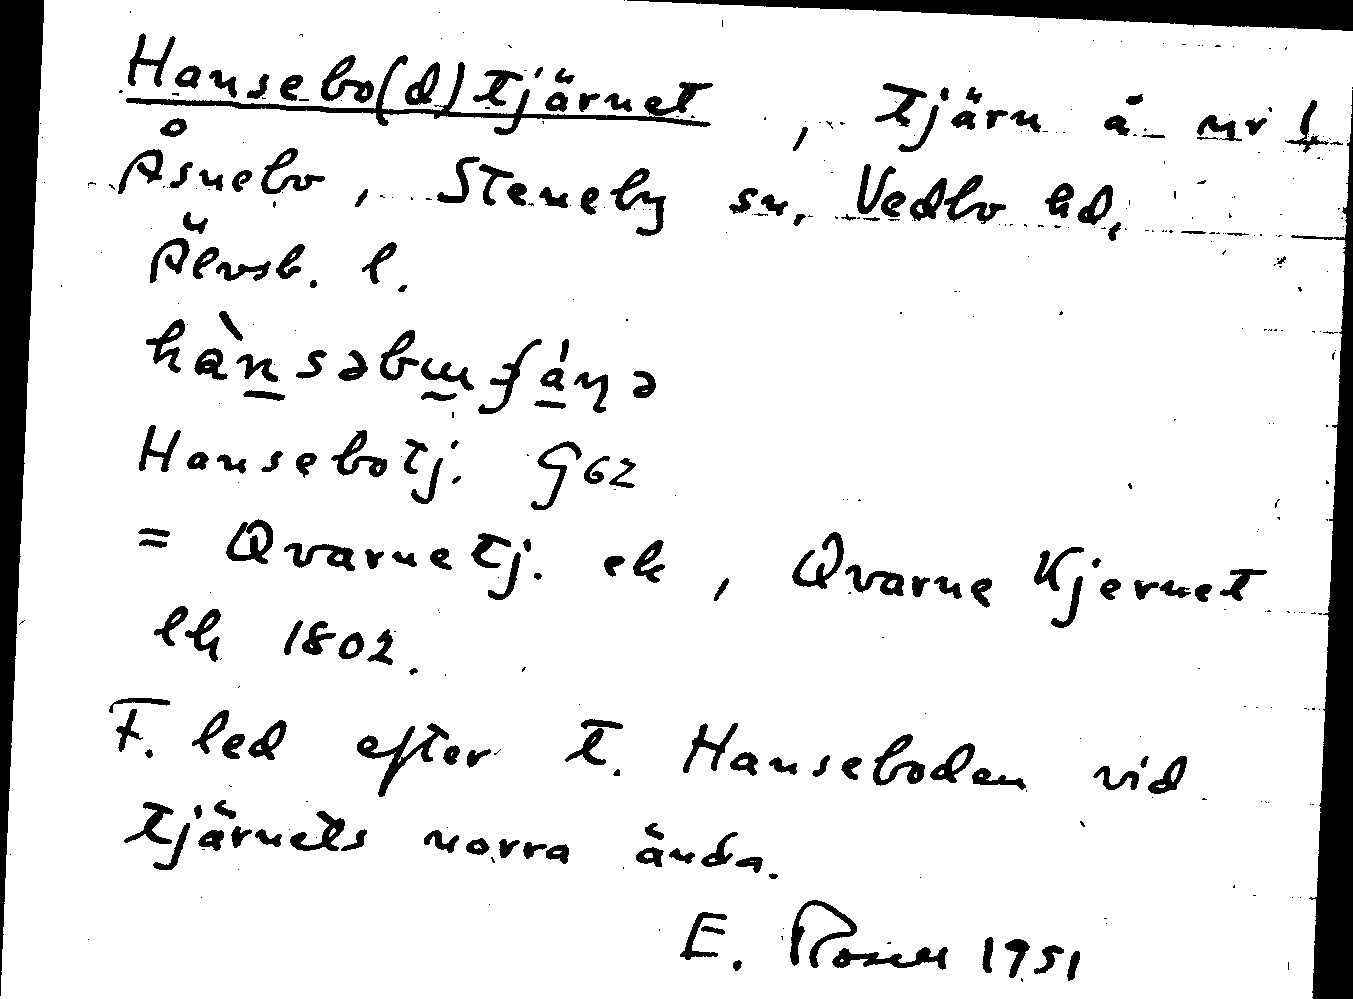 Hansebo(d)tjärnet, tjärn å nr 1
Åsnebo, Steneby sn, Vedbo hd,
Älvsb. l.
hànsəbɯʄánə
Hansebotj. G62
= Qvarnetj. ek, Qvarne Kjernet
lh 1802.
F. led efter t. Hanseboden vid
tjärnets norra ända.
E. Rosell 1951